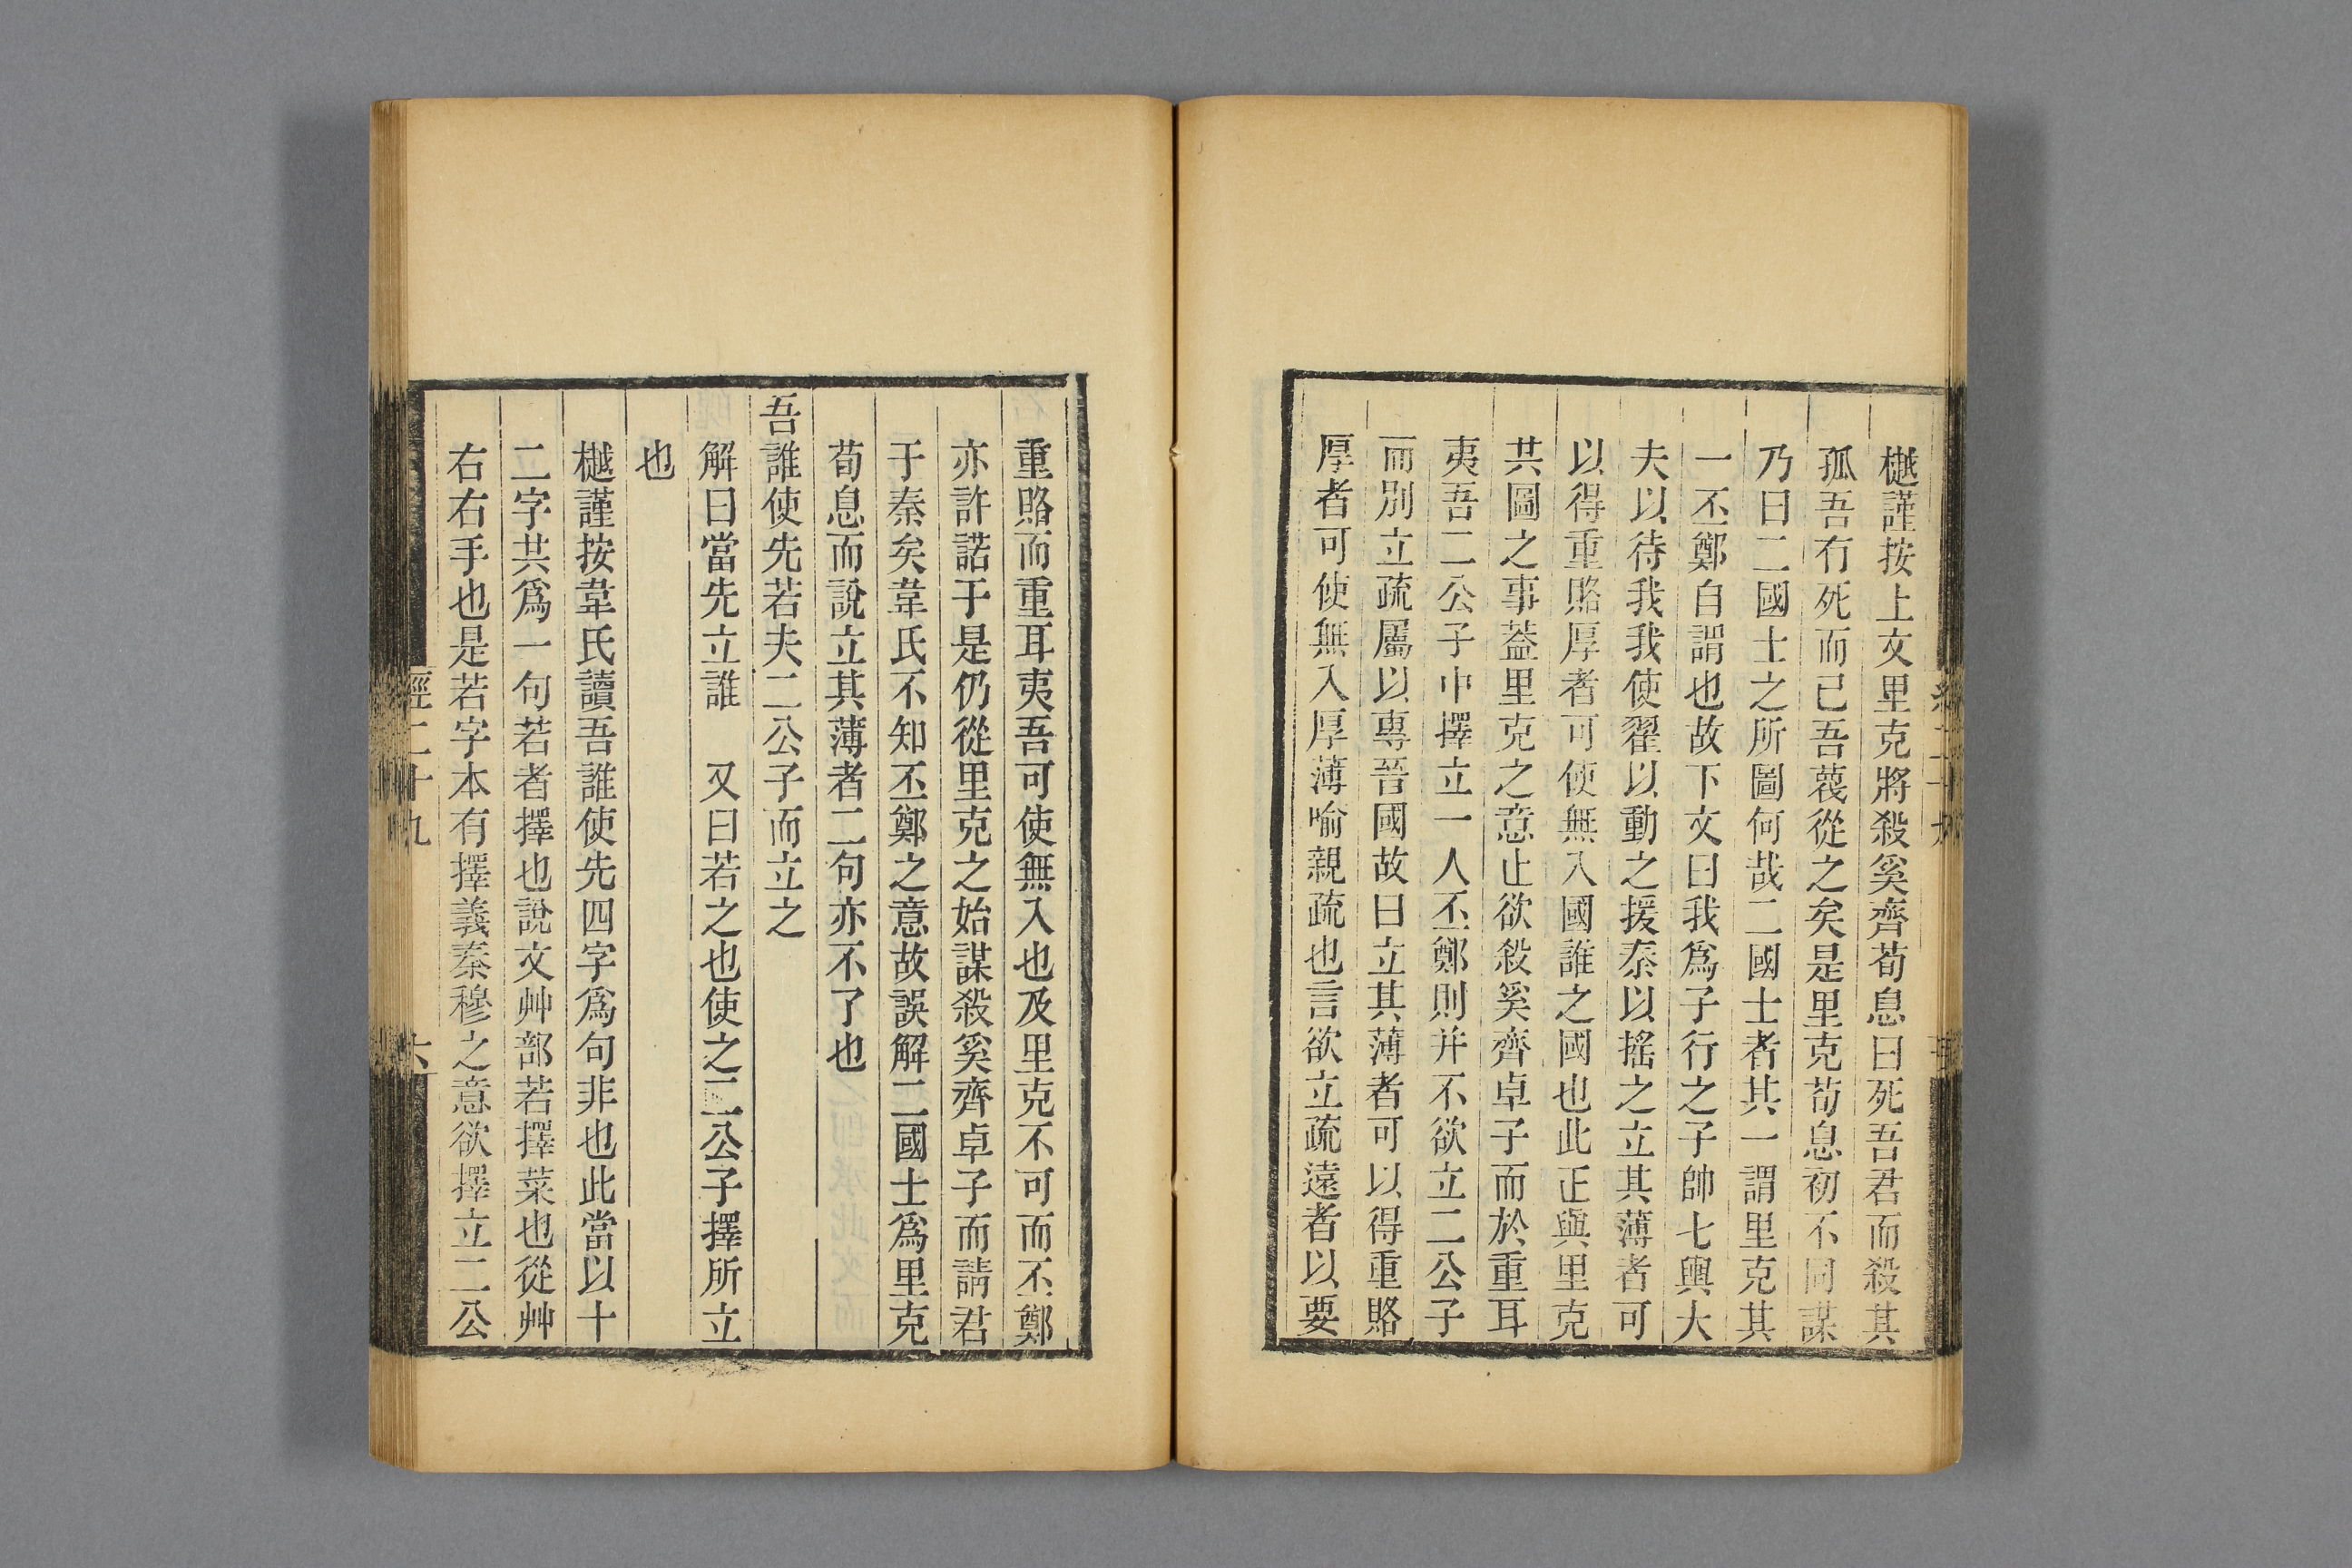 樾謹按上文里克將殺奚齊荀息曰死吾君而殺其
孤吾有死而已吾蔑從之矣是里克荀息初不同謀
乃曰二國士之所圖何哉二國士者其一謂里克其
一丕鄭自謂也故下文曰我爲子行之子帥七輿大
夫以待我我使翟以動之援秦以搖之立其薄者可
以得重賂厚者可使無入國誰之國也此正與里克
共圖之事葢里克之意止欲殺奚齊卓子而於重耳
夷吾二公子中擇立一人丕鄭則并不欲立二公子
而別立疏屬以專晉國故曰立其薄者可以得重賂
厚者可使無入厚薄喻親疏也言欲立疏遠者以要
重賂而重耳夷吾可使無入也及里克不可而丕鄭
亦許諾于是仍從里克之始謀殺奚齊卓子而請君
于秦矣韋氏不知丕鄭之意故誤解二國士爲里克
荀息而說立其薄者二句亦不了也
吾誰使先若夫二公子而立之
解曰當先立誰　又曰若之也使之二公子擇所立
也
樾謹按韋氏讀吾誰使先四字爲句非也此當以十
二字共爲一句若者擇也說文艸部若擇菜也從艸
右右手也是若字本有擇義秦穆之意欲擇立二公
經二十九
六